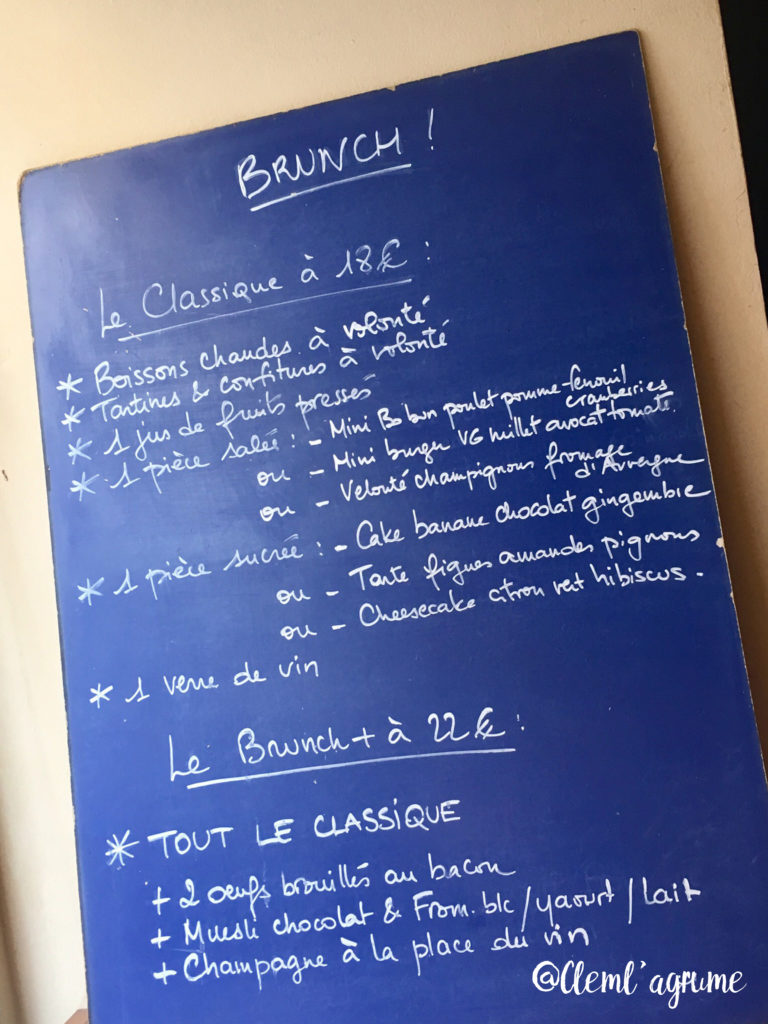 BRUNCH !
Le Classique à 18€ :
* Boissons chaudes à volonté
* Tartines & confitures à volonté
* 1 jus de fruits pressés
* 1 pièce salée : - Mini Bo bun poulet pomme-fenouil cranberries
ou - Mini burger VG millet avocat tomate.
ou - Velouté champignons fromage d'Auvergne
* 1 pièce sucrée : - Cake banane chocolat gingembre
ou - Tarte figues amandes pignons
ou - Cheesecake citron vert hibiscus.
* 1 verre de vin
Le Brunch+ à 22€ :
* TOUT LE CLASSIQUE
+ 2 oeufs brouillés au bacon
+ Muesli chocolat & From. blc / yaourt / lait
+ Champagne à la place du vin
@Cleml'agrume